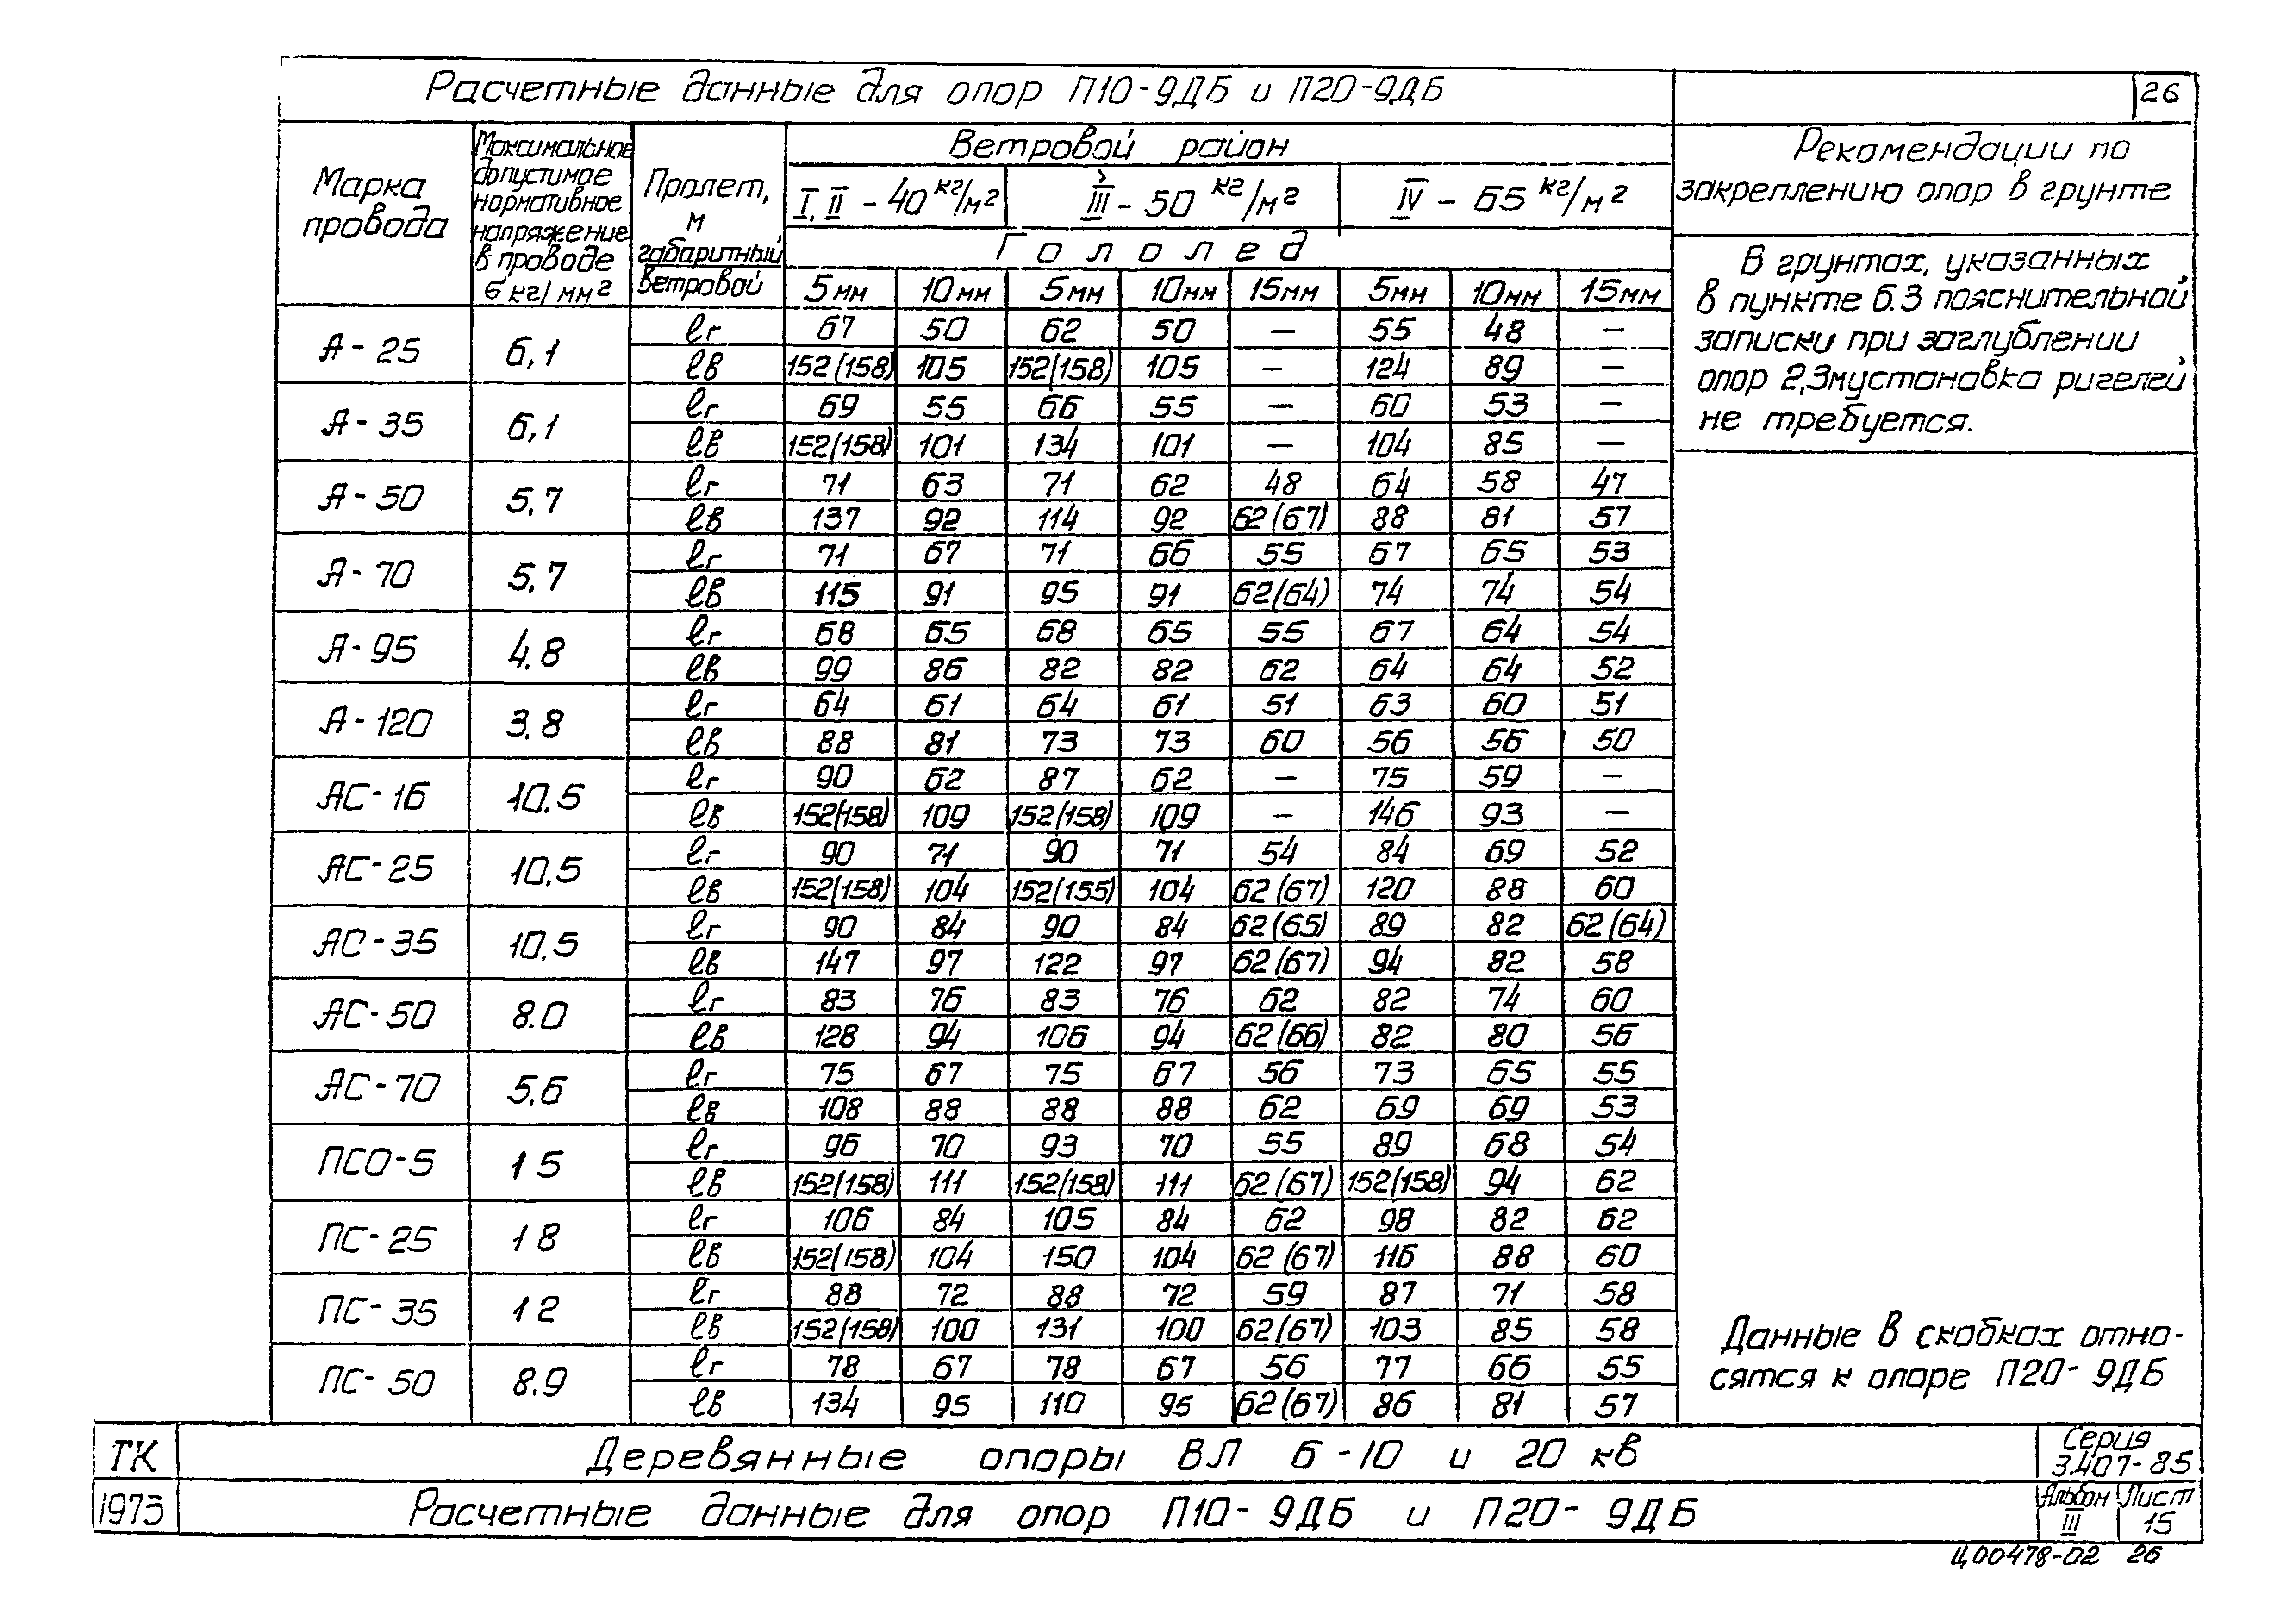 Расчетные данные для опор П10-9ДБ и П20-9ДБ
26
Марка провода
Максимальное допустимое нормативное напряжение в проводе σ кг/мм²
Пролет, м габаритный ветровой
Ветровой район
I, II - 40 кг/м² III - 50 кг/м² IV - 65 кг/м²
Гололед
5мм 10мм 5мм 10мм 15мм 5мм 10мм 15мм
Рекомендации по
закреплению опор в грунте
В грунтах, указанных
в пункте 6.3 пояснительной
записки при заглублении
опор 2,3м установка ригелей
не требуется.
А-25 6,1 lг 67 50 62 50 — 55 48 —
lв 152(158) 105 152(158) 105 — 124 89 —
А-35 6,1 lг 69 55 66 55 — 60 53 —
lв 152(158) 101 134 101 — 104 85 —
А-50 5,7 lг 71 63 71 62 48 64 58 47
lв 137 92 114 92 62(67) 88 81 57
А-70 5,7 lг 71 67 71 66 55 67 65 53
lв 115 91 95 91 62(64) 74 74 54
А-95 4,8 lг 68 65 68 65 55 67 64 54
lв 99 86 82 82 62 64 64 52
А-120 3,8 lг 64 61 64 61 51 63 60 51
lв 88 81 73 73 60 56 56 50
АС-16 10,5 lг 90 62 87 62 — 75 59 —
lв 152(158) 109 152(158) 109 — 146 93 —
АС-25 10,5 lг 90 71 90 71 54 84 69 52
lв 152(158) 104 152(155) 104 62(67) 120 88 60
АС-35 10,5 lг 90 84 90 84 62(65) 89 82 62(64)
lв 147 97 122 97 62(67) 94 82 58
АС-50 8.0 lг 83 76 83 76 62 82 74 60
lв 128 94 106 94 62(66) 82 80 56
АС-70 5.6 lг 75 67 75 67 56 73 65 55
lв 108 88 88 88 62 69 69 53
ПСО-5 15 lг 96 70 93 70 55 89 68 54
lв 152(158) 111 152(158) 111 62(67) 152(158) 94 62
ПС-25 18 lг 106 84 105 84 62 98 82 62
lв 152(158) 104 150 104 62(67) 116 88 60
ПС-35 12 lг 88 72 88 72 59 87 71 58
lв 152(158) 100 131 100 62(67) 103 85 58
ПС-50 8.9 lг 78 67 78 67 56 77 66 55
lв 134 95 110 95 62(67) 86 81 57
Данные в скобках отно-
сятся к опоре П20-9ДБ
ТК
1973
Деревянные опоры ВЛ 6-10 и 20 кв
Расчетные данные для опор П10-9ДБ и П20-9ДБ
Серия
3.407-85
Альбом Лист
III 15
Ц00478-02 26